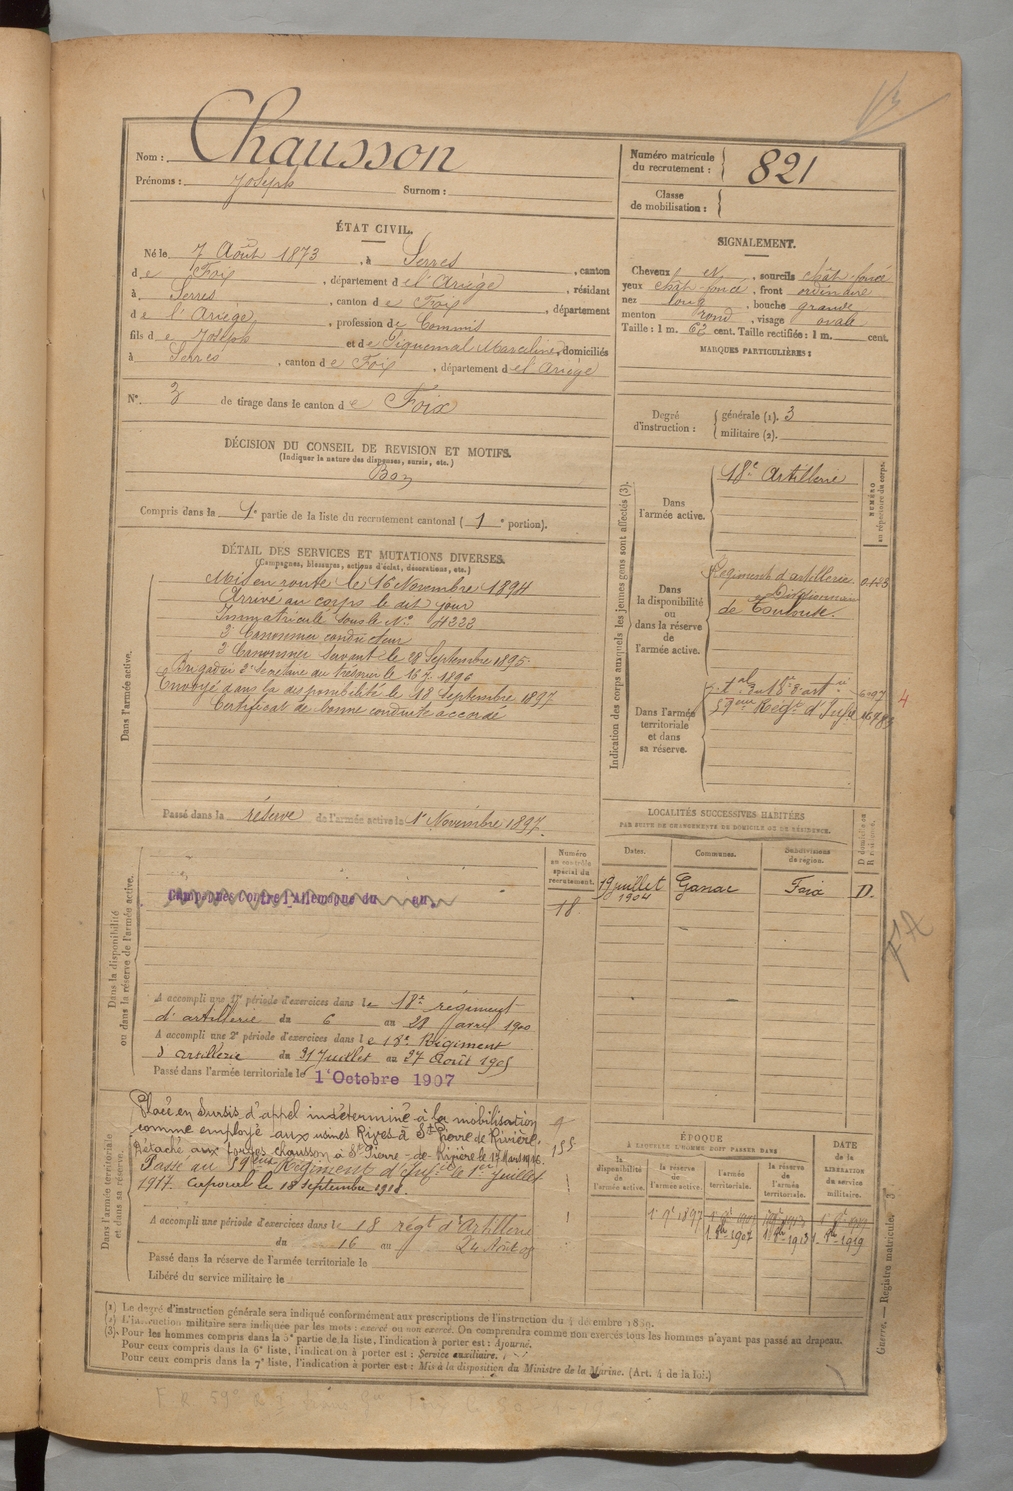 Nom : Chausson
Prénoms : Joseph Surnom :
Numéro matricule du recrutement : 821
Classe de mobilisation :
ÉTAT CIVIL.
Né le 7 Août 1873, à Serres, canton
de Foix, département de l'Ariège, résidant
à Serres, canton de Foix, département
de l'Ariège, profession de Commis
fils de Joseph et de Piquemal Marceline, domiciliés
à Serres, canton de Foix, département de l'Ariège
N° 3 de tirage dans le canton de Foix
SIGNALEMENT.
Cheveux N, sourcils chât-foncé
yeux chât-foncé, front ordinaire
nez long, bouche grande
menton rond, visage ovale
Taille : 1 m. 62 cent. Taille rectifiée : 1 m. cent.
MARQUES PARTICULIÈRES :
Degré d'instruction : générale (1). 3
militaire (2).
DÉCISION DU CONSEIL DE REVISION ET MOTIFS.
(Indiquer la nature des dispenses, sursis, etc.)
Bon
Compris dans la 1e partie de la liste du recrutement cantonal (1e portion).
DÉTAIL DES SERVICES ET MUTATIONS DIVERSES.
(Campagnes, blessures, actions d'éclat, décorations, etc.)
Dans l'armée active.
Mis en route le 16 Novembre 1894
Arrivé au corps le dit jour
Immatriculé sous le N° 4222
2e Canonnier conducteur
2e Canonnier servant le 28 Septembre 1895.
Brigadier 2e Secrétaire du trésorier le 16 7 1896
Envoyé dans la disponibilité le 18 Septembre 1897
Certificat de bonne conduite accordé
Passé dans la réserve de l'armée active le 1er Novembre 1897.
Indication des corps auxquels les jeunes gens sont affectés (3).
NUMÉRO au répertoire du corps.
Dans l'armée active. 18e Artillerie
Dans la disponibilité ou dans la réserve de l'armée active.
Régiment d'artillerie
Divisionnaire
de Toulouse.
Dans l'armée territoriale et dans sa réserve.
59eme Régt d'Infie
4
LOCALITÉS SUCCESSIVES HABITÉES
PAR SUITE DE CHANGEMENTS DE DOMICILE OU DE RÉSIDENCE.
Dates. Communes. Subdivisions de région. D domicile ou R résidence.
19 juillet 1904 Ganac Foix D.
Dans la disponibilité ou dans la réserve de l'armée active.
Numéro au contrôle spécial du recrutement.
18
Campagnes Contre l'Allemagne du au
A accompli une 1re période d'exercices dans le 18e régiment
d'artillerie du 6 au 28 avril 1900
A accompli une 2e période d'exercices dans le 18e Régiment
d'artillerie du 31 Juillet au 27 Août 1905
Passé dans l'armée territoriale le 1er Octobre 1907
Dans l'armée territoriale et dans sa réserve.
Placé en Sursis d'appel indéterminé à la mobilisation
comme employé aux usines Rives à St Pierre de Rivière.
Détaché aux forges chausson à St Pierre-de-Rivière le 17 Mars 1916.
Passé au 59eme Régiment d'Infie le 1er Juillet
1917. Caporal le 18 septembre 1918.
A accompli une période d'exercices dans le 18 régt d'Artillerie
du 16 au 24 Août 09
Passé dans la réserve de l'armée territoriale le
Libéré du service militaire le
155
ÉPOQUE
À LAQUELLE L'HOMME DOIT PASSER DANS
la disponibilité de l'armée active. la réserve de l'armée active. l'armée territoriale. la réserve de l'armée territoriale. DATE de la LIBÉRATION du service militaire.
(1) Le degré d'instruction générale sera indiqué conformément aux prescriptions de l'instruction du 4 décembre 1889.
(2) L'instruction militaire sera indiquée par les mots : exercé ou non exercé. On comprendra comme non exercés tous les hommes n'ayant pas passé au drapeau.
(3) Pour les hommes compris dans la 5e partie de la liste, l'indication à porter est : Ajourné.
Pour ceux compris dans la 6e liste, l'indication à porter est : Service auxiliaire.
Pour ceux compris dans la 7e liste, l'indication à porter est : Mis à la disposition du Ministre de la Marine. (Art. 4 de la loi.)
Guerre. — Registre matricule.